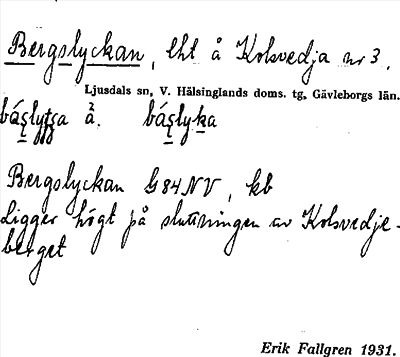 Bergslyckan, lht å Kolsvedja nr 3.
Ljusdals sn, V. Hälsinglands doms. tg, Gävleborgs län.
å. báslyka
Bergslyckan G84NV, kb
Ligger högt på sluttningen av Kolsvedje-
berget
Erik Fallgren 1931.